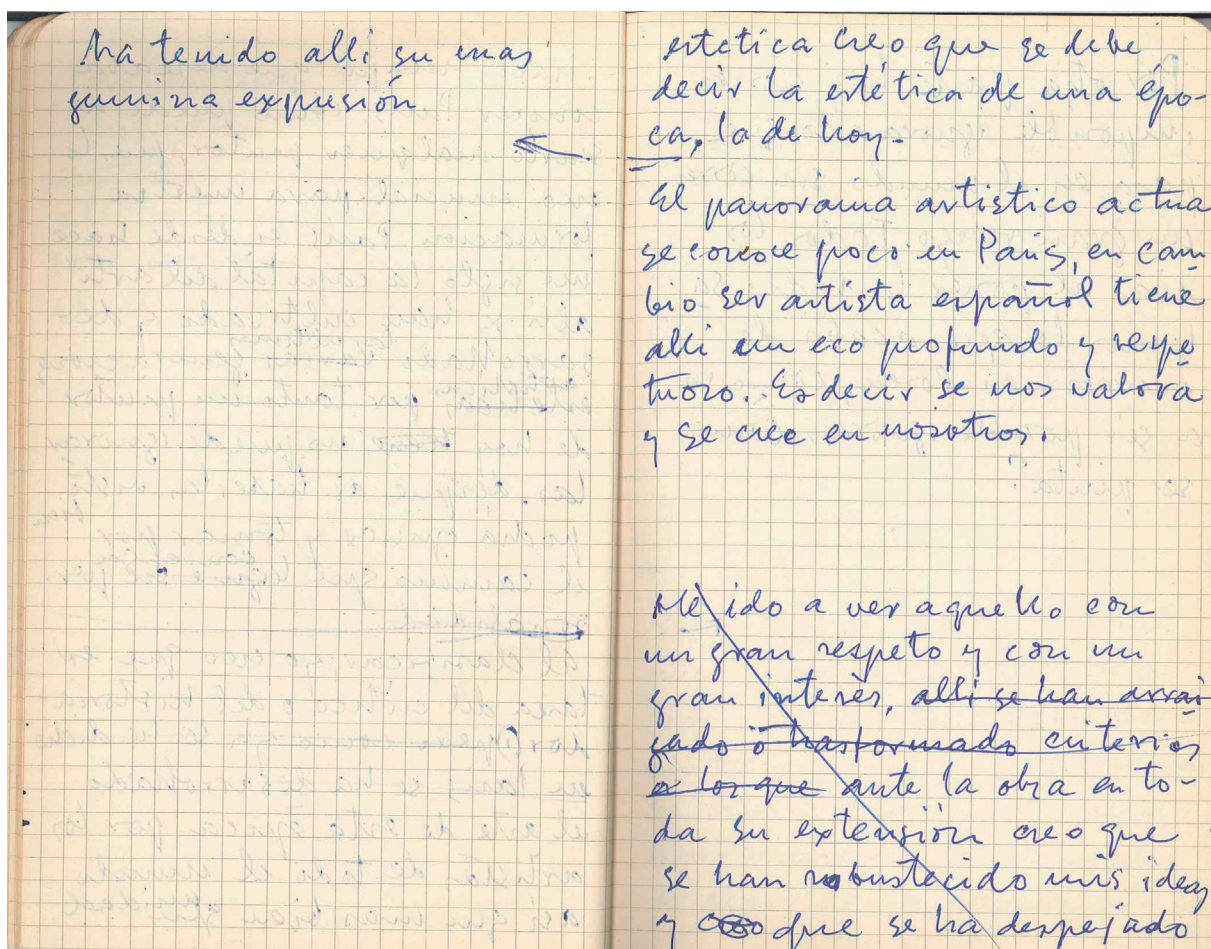 ha tenido alli su mas
genuina expresión
estetica creo que se debe
decir la estética de una épo-
ca, la de hoy.
El panorama artistico actua
se conoce poco en Paris, en cam
bio ser artista español tiene
alli un eco profundo y respe
tuoso. Es decir se nos valora
y se cree en nosotros.
He ido a ver aquello con
un gran respeto y con un
gran interès, alli se han arrai
gado o trasformado criterios
a los que ante la obra en to-
da su extensión creo que
se han robustecido mis ideas
y creo que se ha despejado